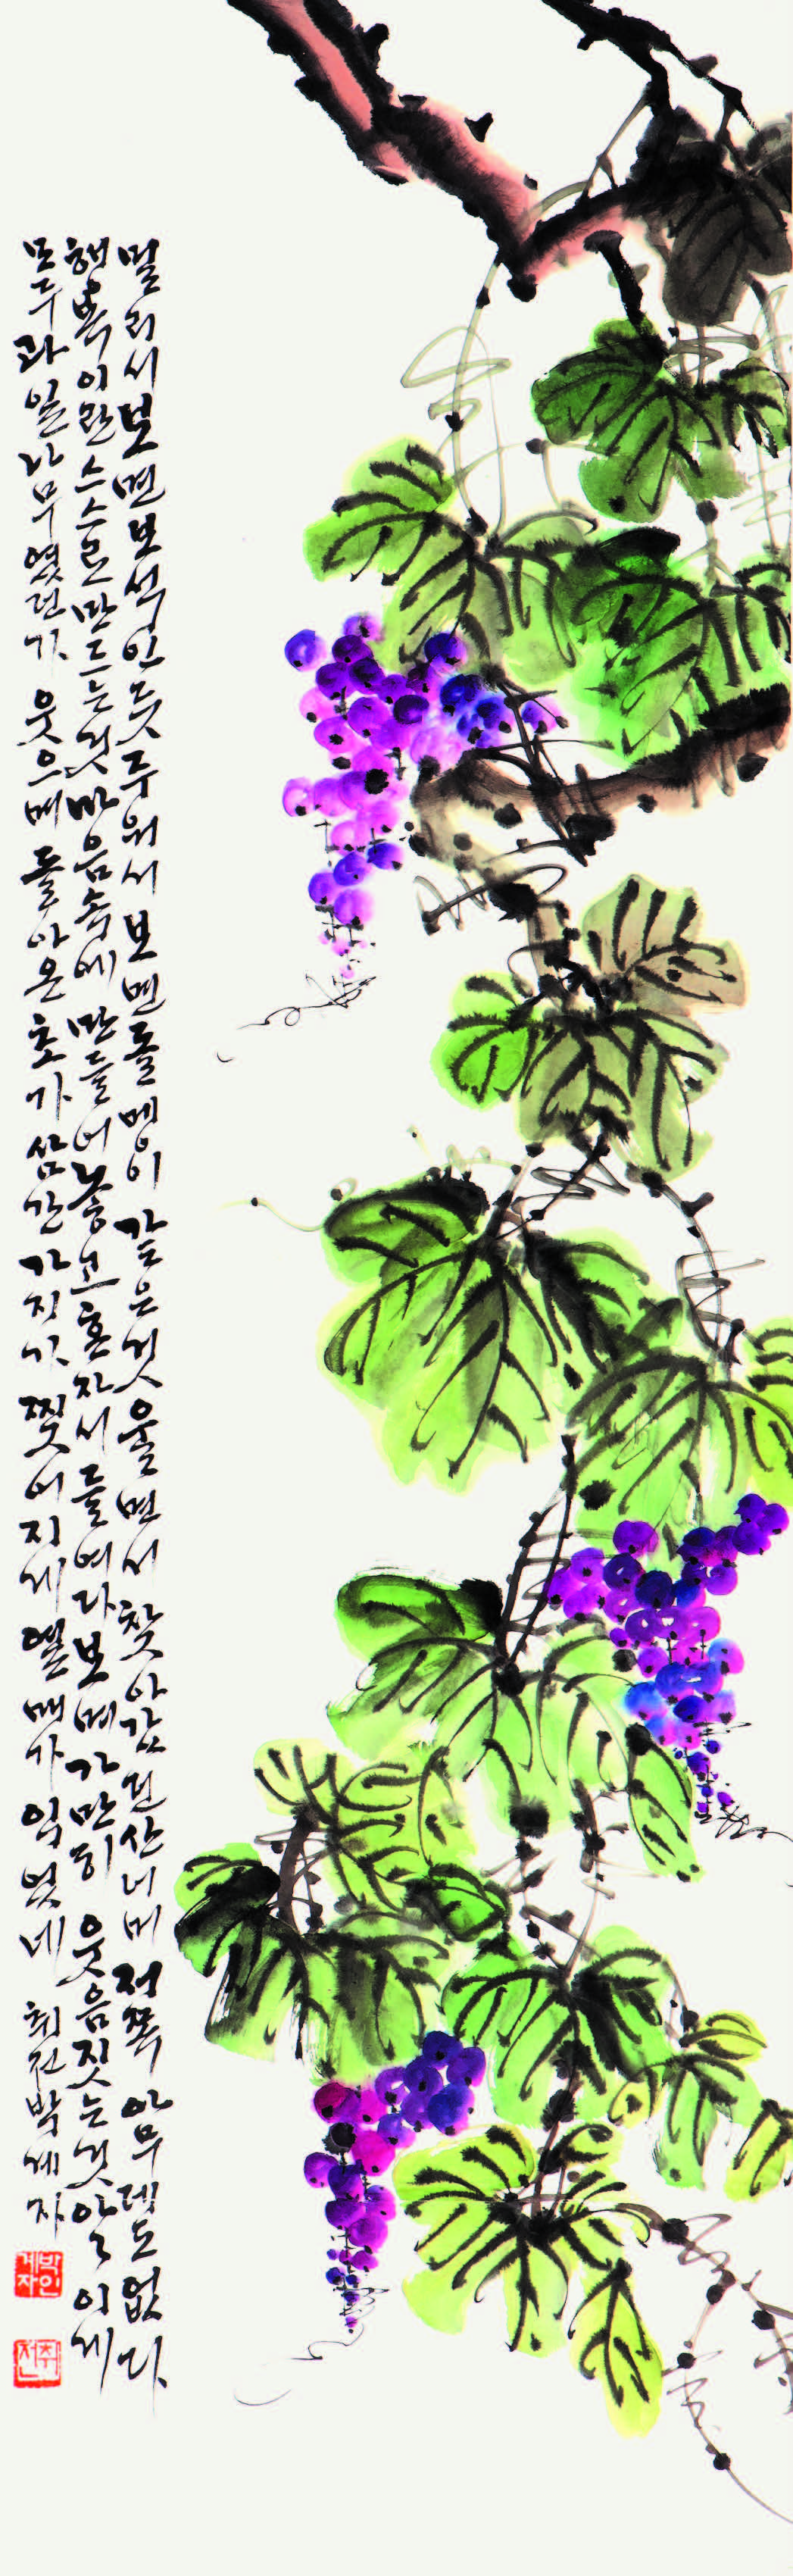 멀리서 보면 보석인 듯 주워서 보면 돌멩이 같은 것 울면서 찾아갔던 산너머 저쪽 아무데도 없다
행복이란 스스로 만드는 것 마음속에 만들어 놓고 혼자서 들여다보며 가만히 웃음짓는 것 아 이게
모두 과일나무였던가 웃으며 돌아온 초가삼간 가지가 찢어지게 열매가 익었네 취전 박계자
박계자인
취전